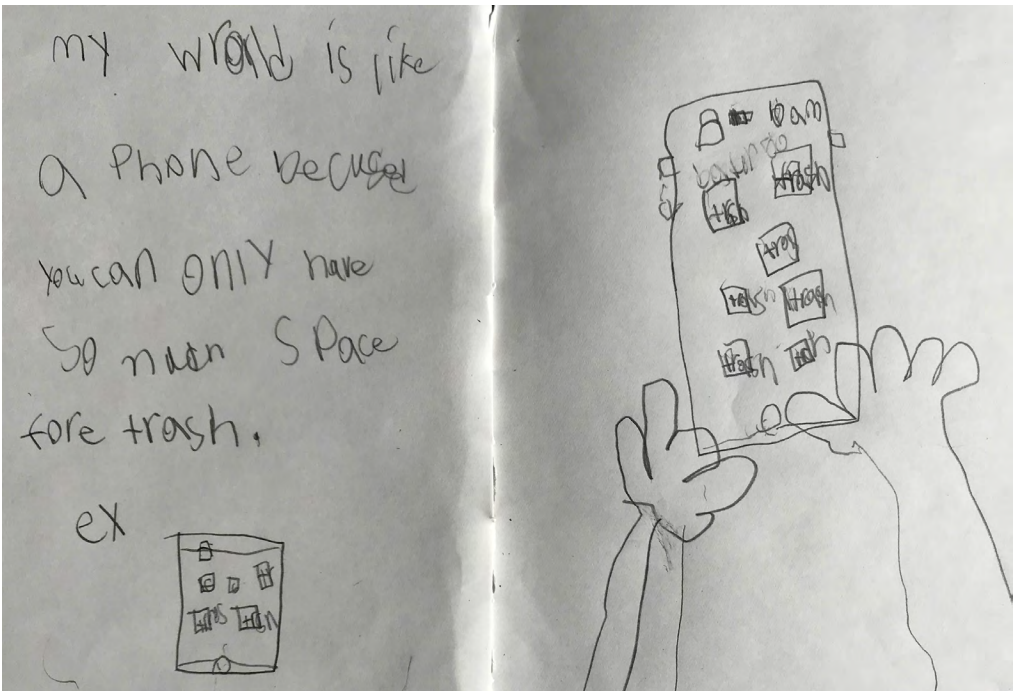 my wrorld is like
a Phone becuse
you can only have
So much SPace
fore trash.
ex
tras trash
10 am
trash
trsh
tras
trash trash
trash trash